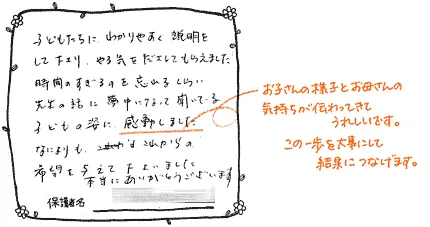 子どもたちに、わかりやすく説明を
して下さり、やる気をだしてもらえました
時間のすぎるのを忘れるくらい
先生の話に夢中になって聞いている
子どもの姿に、感動しました
なによりも、これからの
希望を与えて下さいました
本当にありがとうございます
保護者名
お子さんの様子とお母さんの
気持ちが伝わってきて
うれしいです。
この一歩を大事にして
結果につなげます。